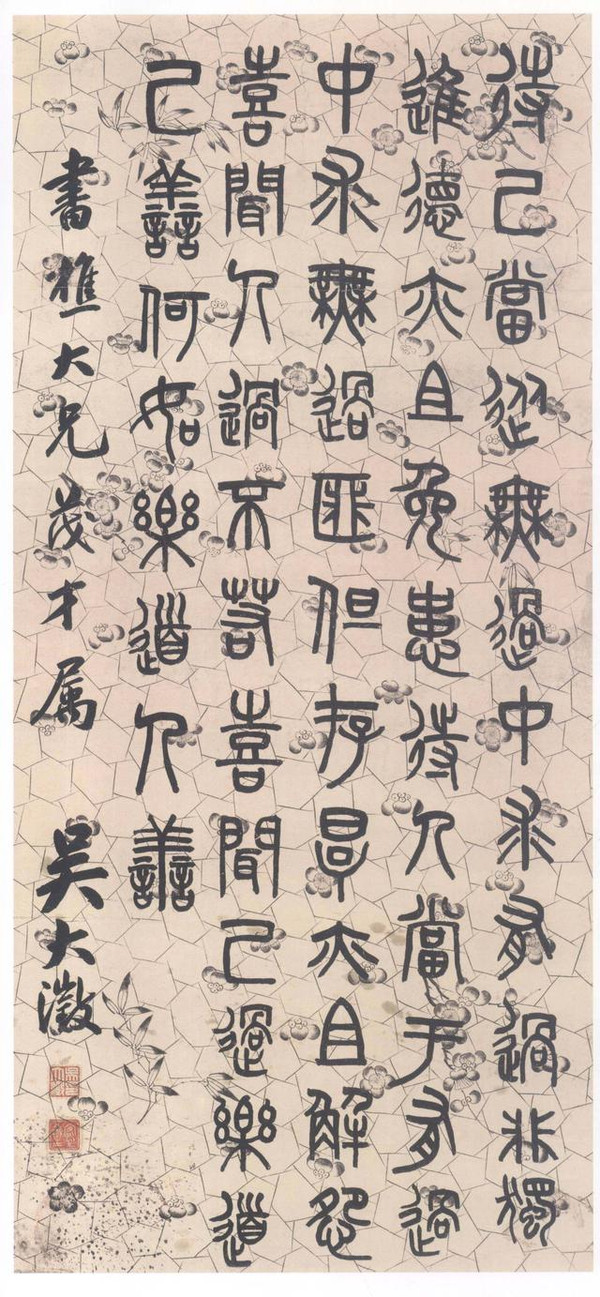 待己當從無過中求有過非獨
進德亦且免患待人當于有過
中求無過匪但存厚亦且解怨
喜聞人過不若喜聞己過樂道
己善何如樂道人善
書樵大兄茂才属 吴大澂